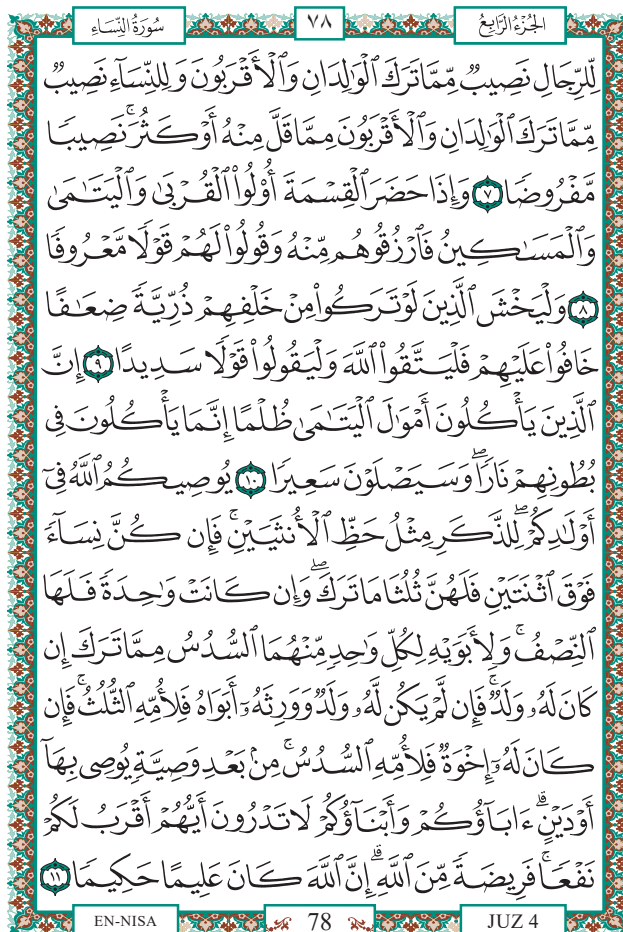 الجُزْءُ الرَّابِعُ
٧٨
سُورَةُ النِّسَاءِ
لِّلرِّجَالِ نَصِيبٌ مِّمَّا تَرَكَ ٱلْوَٰلِدَانِ وَٱلْأَقْرَبُونَ وَلِلنِّسَآءِ نَصِيبٌ
مِّمَّا تَرَكَ ٱلْوَٰلِدَانِ وَٱلْأَقْرَبُونَ مِمَّا قَلَّ مِنْهُ أَوْ كَثُرَۚ نَصِيبًا
مَّفْرُوضًا ٧ وَإِذَا حَضَرَ ٱلْقِسْمَةَ أُو۟لُوا۟ ٱلْقُرْبَىٰ وَٱلْيَتَـٰمَىٰ
وَٱلْمَسَـٰكِينُ فَٱرْزُقُوهُم مِّنْهُ وَقُولُوا۟ لَهُمْ قَوْلًا مَّعْرُوفًا
٨ وَلْيَخْشَ ٱلَّذِينَ لَوْ تَرَكُوا۟ مِنْ خَلْفِهِمْ ذُرِّيَّةً ضِعَـٰفًا
خَافُوا۟ عَلَيْهِمْ فَلْيَتَّقُوا۟ ٱللَّهَ وَلْيَقُولُوا۟ قَوْلًا سَدِيدًا ٩ إِنَّ
ٱلَّذِينَ يَأْكُلُونَ أَمْوَٰلَ ٱلْيَتَـٰمَىٰ ظُلْمًا إِنَّمَا يَأْكُلُونَ فِى
بُطُونِهِمْ نَارًاۖ وَسَيَصْلَوْنَ سَعِيرًا ١٠ يُوصِيكُمُ ٱللَّهُ فِىٓ
أَوْلَـٰدِكُمْۖ لِلذَّكَرِ مِثْلُ حَظِّ ٱلْأُنثَيَيْنِۚ فَإِن كُنَّ نِسَآءً
فَوْقَ ٱثْنَتَيْنِ فَلَهُنَّ ثُلُثَا مَا تَرَكَۖ وَإِن كَانَتْ وَٰحِدَةً فَلَهَا
ٱلنِّصْفُۚ وَلِأَبَوَيْهِ لِكُلِّ وَٰحِدٍ مِّنْهُمَا ٱلسُّدُسُ مِمَّا تَرَكَ إِن
كَانَ لَهُۥ وَلَدٌۚ فَإِن لَّمْ يَكُن لَّهُۥ وَلَدٌ وَوَرِثَهُۥٓ أَبَوَاهُ فَلِأُمِّهِ ٱلثُّلُثُۚ فَإِن
كَانَ لَهُۥٓ إِخْوَةٌ فَلِأُمِّهِ ٱلسُّدُسُۚ مِنۢ بَعْدِ وَصِيَّةٍ يُوصِى بِهَآ
أَوْ دَيْنٍۗ ءَابَآؤُكُمْ وَأَبْنَآؤُكُمْ لَا تَدْرُونَ أَيُّهُمْ أَقْرَبُ لَكُمْ
نَفْعًاۚ فَرِيضَةً مِّنَ ٱللَّهِۗ إِنَّ ٱللَّهَ كَانَ عَلِيمًا حَكِيمًا ١١
EN-NISA
78
JUZ 4